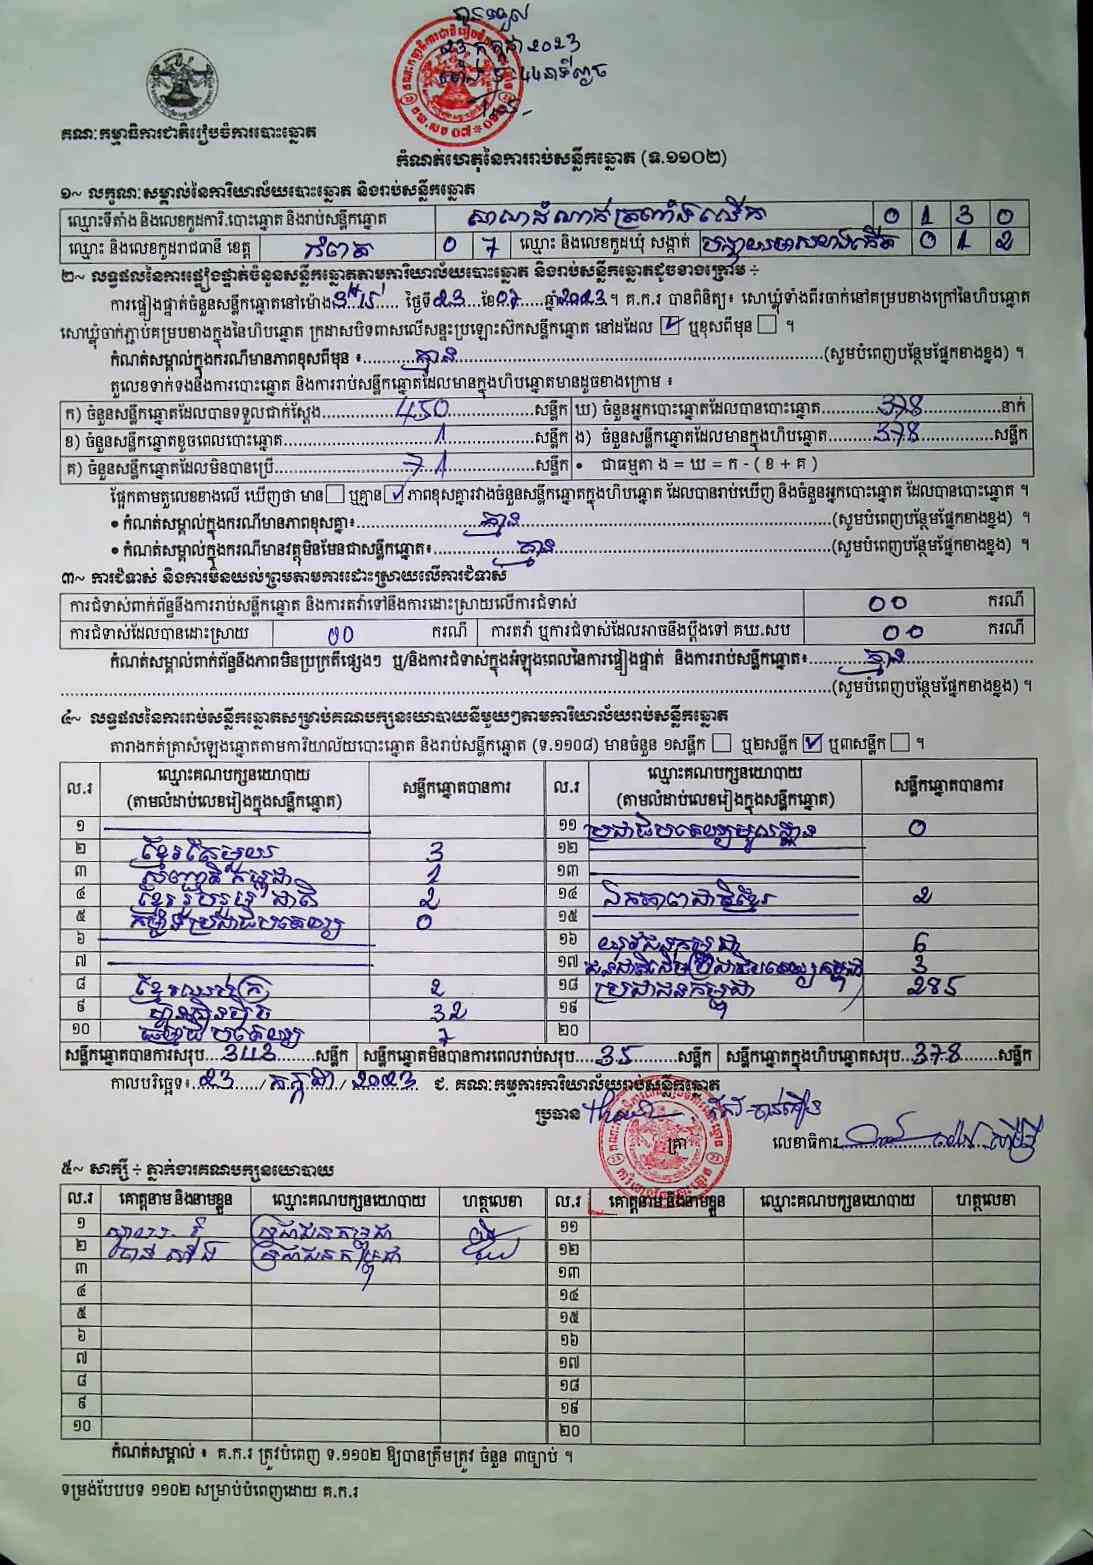 បានទទួល
23 កក្កដា 2023
គណៈកម្មាធិការជាតិរៀបចំការបោះឆ្នោត
កំណត់ហេតុនៃការរាប់សន្លឹកឆ្នោត (ទ.១១០២)
១~ លក្ខណៈសម្គាល់នៃការិយាល័យបោះឆ្នោត និងរាប់សន្លឹកឆ្នោត
ឈ្មោះទីតាំង និងលេខកូដការិ.បោះឆ្នោត និងរាប់សន្លឹកឆ្នោត សាលាដំណាក់ត្រពាំងលើក 0 1 3 0
ឈ្មោះ និងលេខកូដរាជធានី ខេត្ត កំពត 0 7 ឈ្មោះ និងលេខកូដឃុំ សង្កាត់ 0 1 2
២~ លទ្ធផលនៃការផ្ទៀងផ្ទាត់ចំនួនសន្លឹកឆ្នោតតាមការិយាល័យបោះឆ្នោត និងរាប់សន្លឹកឆ្នោតដូចខាងក្រោម ÷
ការផ្ទៀងផ្ទាត់ចំនួនសន្លឹកឆ្នោតនៅម៉ោង ថ្ងៃទី 23 ខែ 07 ឆ្នាំ 2023 ។ គ.ក.រ បានពិនិត្យ៖ សោឃ្លុំទាំងពីរចាក់នៅគម្របខាងក្រៅនៃហិបឆ្នោត
សោឃ្លុំចាក់ភ្ជាប់គម្របខាងក្នុងនៃហិបឆ្នោត ក្រដាសបិទពាសលើសន្ទះប្រឡោះសិកសន្លឹកឆ្នោត នៅដដែល ☑ ឬខុសពីមុន ☐ ។
កំណត់សម្គាល់ក្នុងករណីមានភាពខុសពីមុន ៖ គ្មាន (សូមបំពេញបន្ថែមផ្នែកខាងខ្នង) ។
តួលេខទាក់ទងនឹងការបោះឆ្នោត និងការរាប់សន្លឹកឆ្នោតដែលមានក្នុងហិបឆ្នោតមានដូចខាងក្រោម ៖
ក) ចំនួនសន្លឹកឆ្នោតដែលបានទទួលជាក់ស្តែង 450 សន្លឹក ឃ) ចំនួនអ្នកបោះឆ្នោតដែលបានបោះឆ្នោត 378 នាក់
ខ) ចំនួនសន្លឹកឆ្នោតខូចពេលបោះឆ្នោត 1 សន្លឹក ង) ចំនួនសន្លឹកឆ្នោតដែលមានក្នុងហិបឆ្នោត 378 សន្លឹក
គ) ចំនួនសន្លឹកឆ្នោតដែលមិនបានប្រើ 71 សន្លឹក • ជាធម្មតា ង = ឃ = ក - ( ខ + គ )
ផ្អែកតាមតួលេខខាងលើ ឃើញថា មាន ☐ ឬគ្មាន ☑ ភាពខុសគ្នារវាងចំនួនសន្លឹកឆ្នោតក្នុងហិបឆ្នោត ដែលបានរាប់ឃើញ និងចំនួនអ្នកបោះឆ្នោត ដែលបានបោះឆ្នោត ។
• កំណត់សម្គាល់ក្នុងករណីមានភាពខុសគ្នា៖ គ្មាន (សូមបំពេញបន្ថែមផ្នែកខាងខ្នង) ។
• កំណត់សម្គាល់ក្នុងករណីមានវត្ថុមិនមែនជាសន្លឹកឆ្នោត៖ គ្មាន (សូមបំពេញបន្ថែមផ្នែកខាងខ្នង) ។
៣~ ការជំទាស់ និងការមិនយល់ព្រមតាមការដោះស្រាយលើការជំទាស់
ការជំទាស់ពាក់ព័ន្ធនឹងការរាប់សន្លឹកឆ្នោត និងការតវ៉ាទៅនឹងការដោះស្រាយលើការជំទាស់ 00 ករណី
ការជំទាស់ដែលបានដោះស្រាយ 00 ករណី ការតវ៉ា ឬការជំទាស់ដែលអាចនឹងប្តឹងទៅ គឃ.សប 00 ករណី
កំណត់សម្គាល់ពាក់ព័ន្ធនឹងភាពមិនប្រក្រតីផ្សេងៗ ឬ/និងការជំទាស់ក្នុងអំឡុងពេលនៃការផ្ទៀងផ្ទាត់ និងការរាប់សន្លឹកឆ្នោត៖ គ្មាន
(សូមបំពេញបន្ថែមផ្នែកខាងខ្នង) ។
៤~ លទ្ធផលនៃការរាប់សន្លឹកឆ្នោតសម្រាប់គណបក្សនយោបាយនីមួយៗតាមការិយាល័យរាប់សន្លឹកឆ្នោត
តារាងកត់ត្រាសំឡេងឆ្នោតតាមការិយាល័យបោះឆ្នោត និងរាប់សន្លឹកឆ្នោត (ទ.១១០៨) មានចំនួន ១សន្លឹក ☐ ឬ២សន្លឹក ☑ ឬ៣សន្លឹក ☐ ។
ល.រ ឈ្មោះគណបក្សនយោបាយ សន្លឹកឆ្នោតបានការ ល.រ ឈ្មោះគណបក្សនយោបាយ សន្លឹកឆ្នោតបានការ
(តាមលំដាប់លេខរៀងក្នុងសន្លឹកឆ្នោត) (តាមលំដាប់លេខរៀងក្នុងសន្លឹកឆ្នោត)
១ ១១ ប្រជាធិបតេយ្យមូលដ្ឋាន 0
២ ខ្មែរតែមួយ 3 ១២
៣ សញ្ជាតិកម្ពុជា 1 ១៣
៤ ខ្មែររួបរួមជាតិ 2 ១៤ ឯកភាពជាតិខ្មែរ 2
៥ កម្លាំងប្រជាធិបតេយ្យ 0 ១៥
៦ ១៦ យុវជនកម្ពុជា 6
៧ ១៧ ជនជាតិដើមប្រជាធិបតេយ្យកម្ពុជា 3
៨ ខ្មែរឈប់ក្រ 2 ១៨ ប្រជាជនកម្ពុជា 285
៩ ហ៊្វុនស៊ិនប៉ិច 32 ១៩
១០ ធម្មាធិបតេយ្យ 7 ២០
សន្លឹកឆ្នោតបានការសរុប 343 សន្លឹក សន្លឹកឆ្នោតមិនបានការពេលរាប់សរុប 35 សន្លឹក សន្លឹកឆ្នោតក្នុងហិបឆ្នោតសរុប 378 សន្លឹក
កាលបរិច្ឆេទ៖ 23 / កក្កដា / 2023 ជ. គណៈកម្មការការិយាល័យរាប់សន្លឹកឆ្នោត
ប្រធាន
ត្រា លេខាធិការ
៥~ សាក្សី ÷ ភ្នាក់ងារគណបក្សនយោបាយ
ល.រ គោត្តនាម និងនាមខ្លួន ឈ្មោះគណបក្សនយោបាយ ហត្ថលេខា ល.រ គោត្តនាម និងនាមខ្លួន ឈ្មោះគណបក្សនយោបាយ ហត្ថលេខា
១ ប្រជាជនកម្ពុជា ១១
២ ប្រជាជនកម្ពុជា ១២
៣ ១៣
៤ ១៤
៥ ១៥
៦ ១៦
៧ ១៧
៨ ១៨
៩ ១៩
១០ ២០
កំណត់សម្គាល់ ៖ គ.ក.រ ត្រូវបំពេញ ទ.១១០២ ឱ្យបានត្រឹមត្រូវ ចំនួន ៣ច្បាប់ ។
ទម្រង់បែបបទ ១១០២ សម្រាប់បំពេញដោយ គ.ក.រ